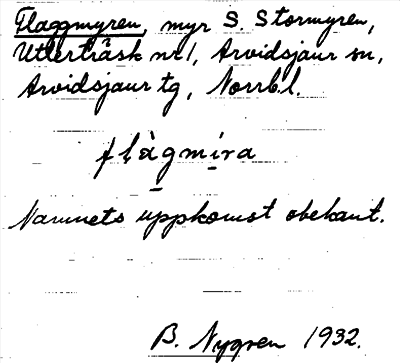 Flaggmyren, myr S. Stormyren,
Utterträsk nr 1, Arvidsjaur sn,
Arvidsjaur tg, Norrb. l.
flàgmíra
Namnets uppkomst obekant.
B. Nygren 1932.